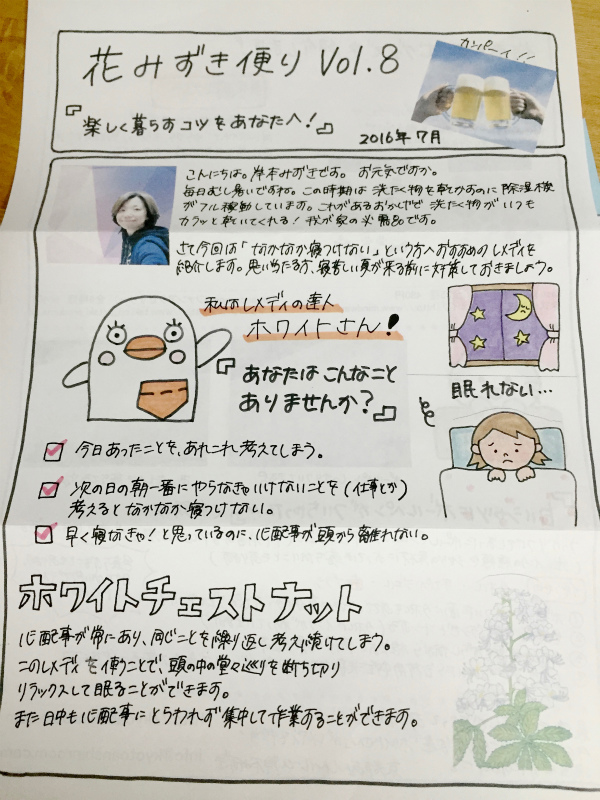 花みずき便り Vol.8
カンパーイ!!
『楽しく暮らすコツをあなたへ!』
2016年7月
こんにちは。岸本みずきです。お元気ですか。
毎日むし暑いですね。この時期は洗たく物を乾かすのに除湿機
がフル稼動しています。これがあるおかげで洗たく物がいつも
カラッと乾いてくれる!我が家の必需品です。
さて今回は「なかなか寝つけない」という方へおすすめのレメディを
紹介します。思い当たる方、寝苦しい夏が来る前に対策しておきましょう。
私はレメディの達人
ホワイトさん!
『あなたはこんなこと
ありませんか?』
眠れない…
今日あったことを、あれこれ考えてしまう。
次の日の朝一番にやらなきゃいけないことを(仕事とか)
考えるとなかなか寝つけない。
早く寝なきゃ!と思っているのに、心配事が頭から離れない。
ホワイトチェストナット
心配事が常にあり、同じことを繰り返し考え続けてしまう。
このレメディを使うことで、頭の中の堂々巡りを断ち切り
リラックスして眠ることができます。
また日中も心配事にとらわれず集中して作業することができます。